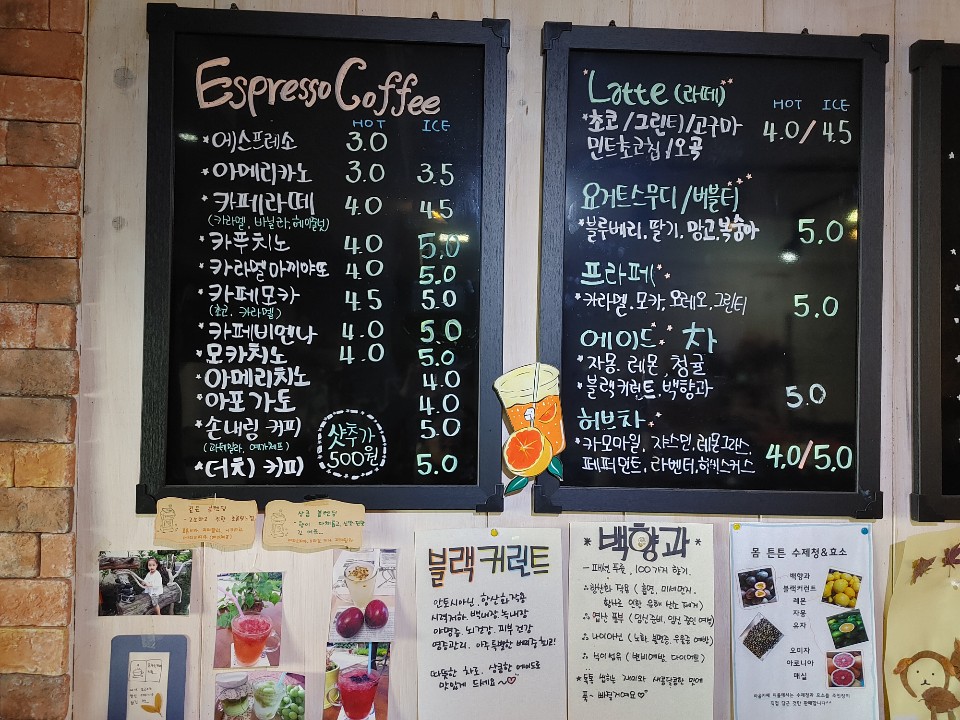 Espresso Coffee
HOT ICE
*에스프레소 3.0
*아메리카노 3.0 3.5
*카페라떼 4.0 4.5
(카라멜, 바닐라, 헤이즐넛)
*카푸치노 4.0 5.0
*카라멜마끼야또 4.0 5.0
*카페모카 4.5 5.0
(초코, 카라멜)
*카페비엔나 4.0 5.0
*모카치노 4.0 5.0
*아메리치노 4.0
*아포가토 4.0
*손내림 커피 5.0
*더치 커피 5.0
샷추가
500원
Latte (라떼)
HOT ICE
*초코/그린티/고구마 4.0/4.5
민트초코칩/오곡
요거트스무디/버블티
*블루베리, 딸기, 망고, 복숭아 5.0
프라페
*카라멜, 모카, 오레오, 그린티 5.0
에이드 차
*자몽, 레몬, 청귤
*블랙커런트, 백향과 5.0
허브차
*카모마일, 쟈스민, 레몬그라스, 4.0/5.0
페퍼민트, 라벤더, 히비스커스
블랙커런트
안토시아닌, 항산화작용
시력저하, 백내장, 녹내장
야맹증, 뇌건강, 피부건강
따뜻한 차로, 상큼한 에이드로
맛있게 드세요~♡
*백향과*
- 패션푸릇, 100가지 향기.
몸 튼튼 수제청&효소
백향과
블랙커런트
레몬
자몽
유자
오미자
아로니아
매실